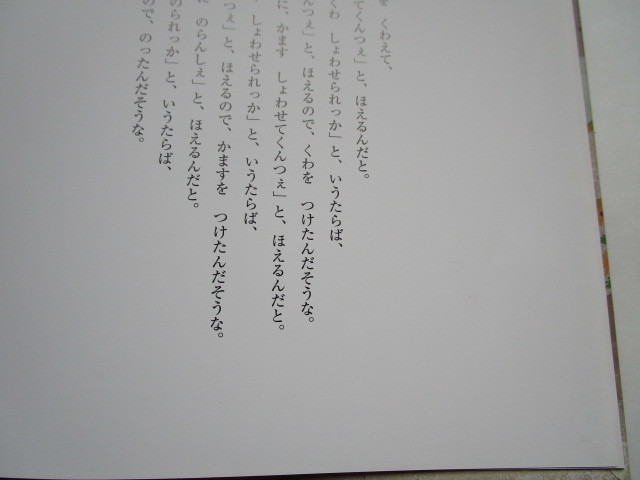 くわえて、
てくんつぇ」と、ほえるんだと。
くわ しょわせられっか」と、いうたらば、
んつぇ」と、ほえるので、くわを つけたんだそうな。
に、かます しょわせてくんつぇ」と、ほえるんだと。
しょわせられっか」と、いうたらば、
つぇ」と、ほえるので、かますを つけたんだそうな。
のらんしぇ」と、ほえるんだと。
のられっか」と、いうたらば、
ので、のったんだそうな。